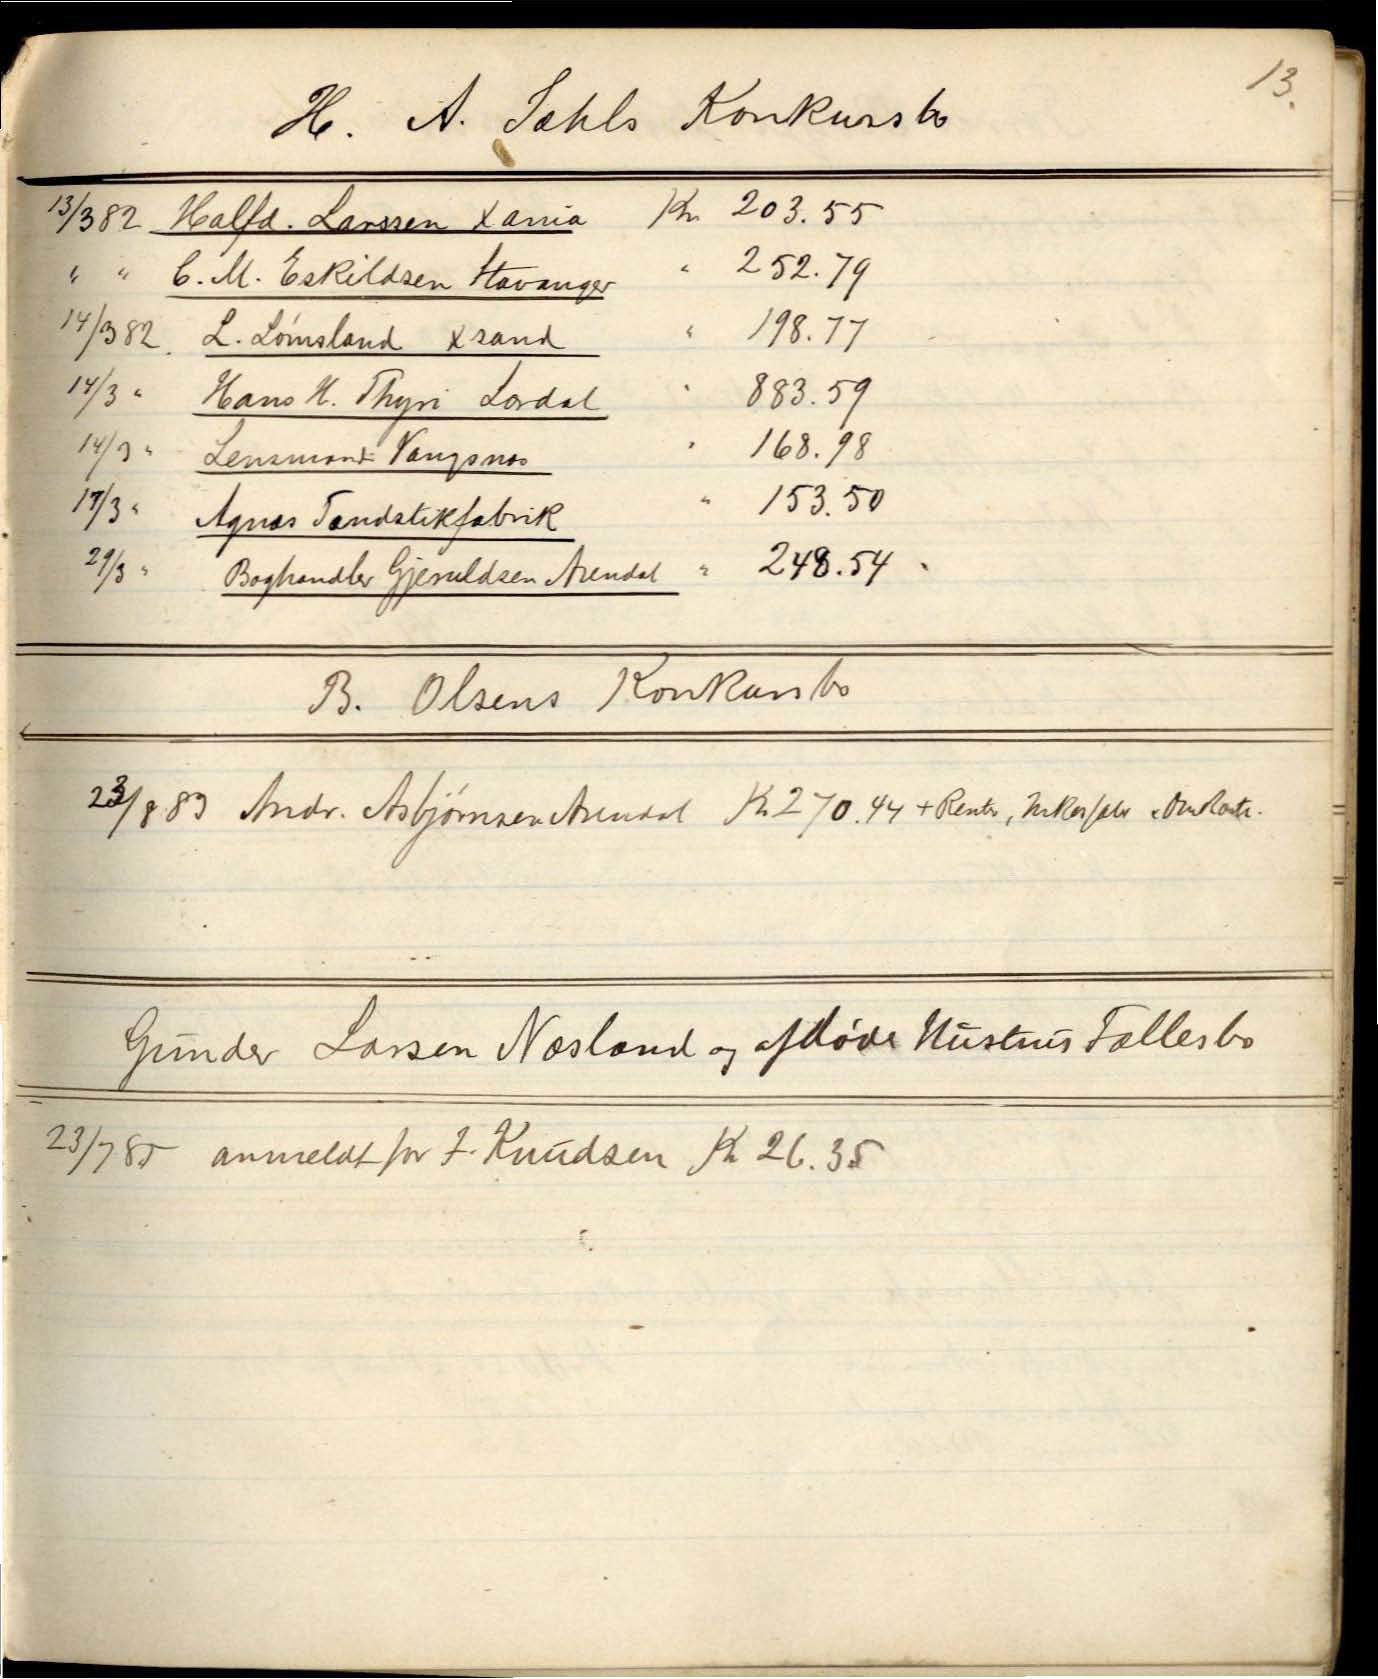 13.
H. A. Sæhls Konkursbo
13/3 82 Halfd. Larssen Xania Kr 203.55
" " C. M. Eskildsen Stavanger " 252.79
14/3 82. L. Lömsland Xsand " 198.77
14/3 " Hans H. Thyri Lærdal " 883.59
14/3 " Lensmand Vangsnes " 168.98
17/3 " Agnæs Tændstikfabrik " 153.50
29/3 " Boghandler Gjeruldsen Arendal " 248.54
B. Olsens Konkursbo
23/8 83 Andr. Asbjörnsen Arendal Kr 270.44 + Renter,
Gunder Larsen Næsland og afdöde Hustrus Fællesbo
23/7 85 anmeldt for J. Knudsen Kr 26.35